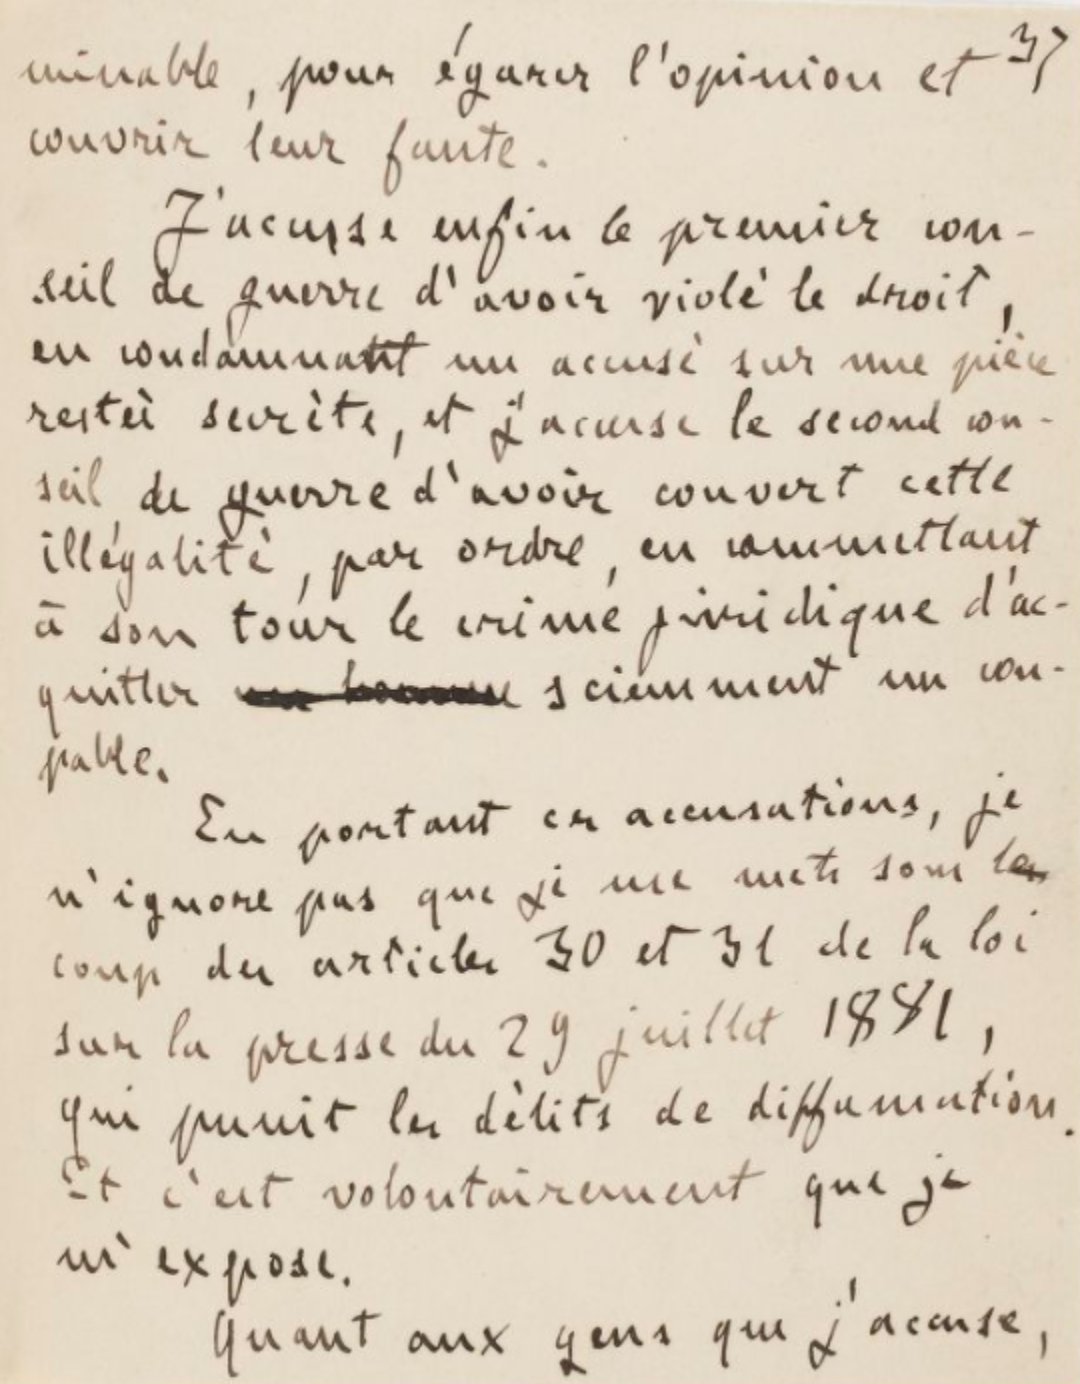 minable, pour égarer l'opinion et 37
couvrir leur faute.
J'accuse enfin le premier con-
seil de guerre d'avoir violé le droit,
en condamnant un accusé sur une pièce
restée secrète, et j'accuse le second con-
seil de guerre d'avoir couvert cette
illégalité, par ordre, en commettant
à son tour le crime juridique d'ac-
quitter un homme sciemment un cou-
pable.
En portant ces accusations, je
n'ignore pas que je me mets sous le
coup des articles 30 et 31 de la loi
sur la presse du 29 juillet 1881,
qui punit les délits de diffamation.
Et c'est volontairement que je
m'expose.
Quant aux gens que j'accuse,